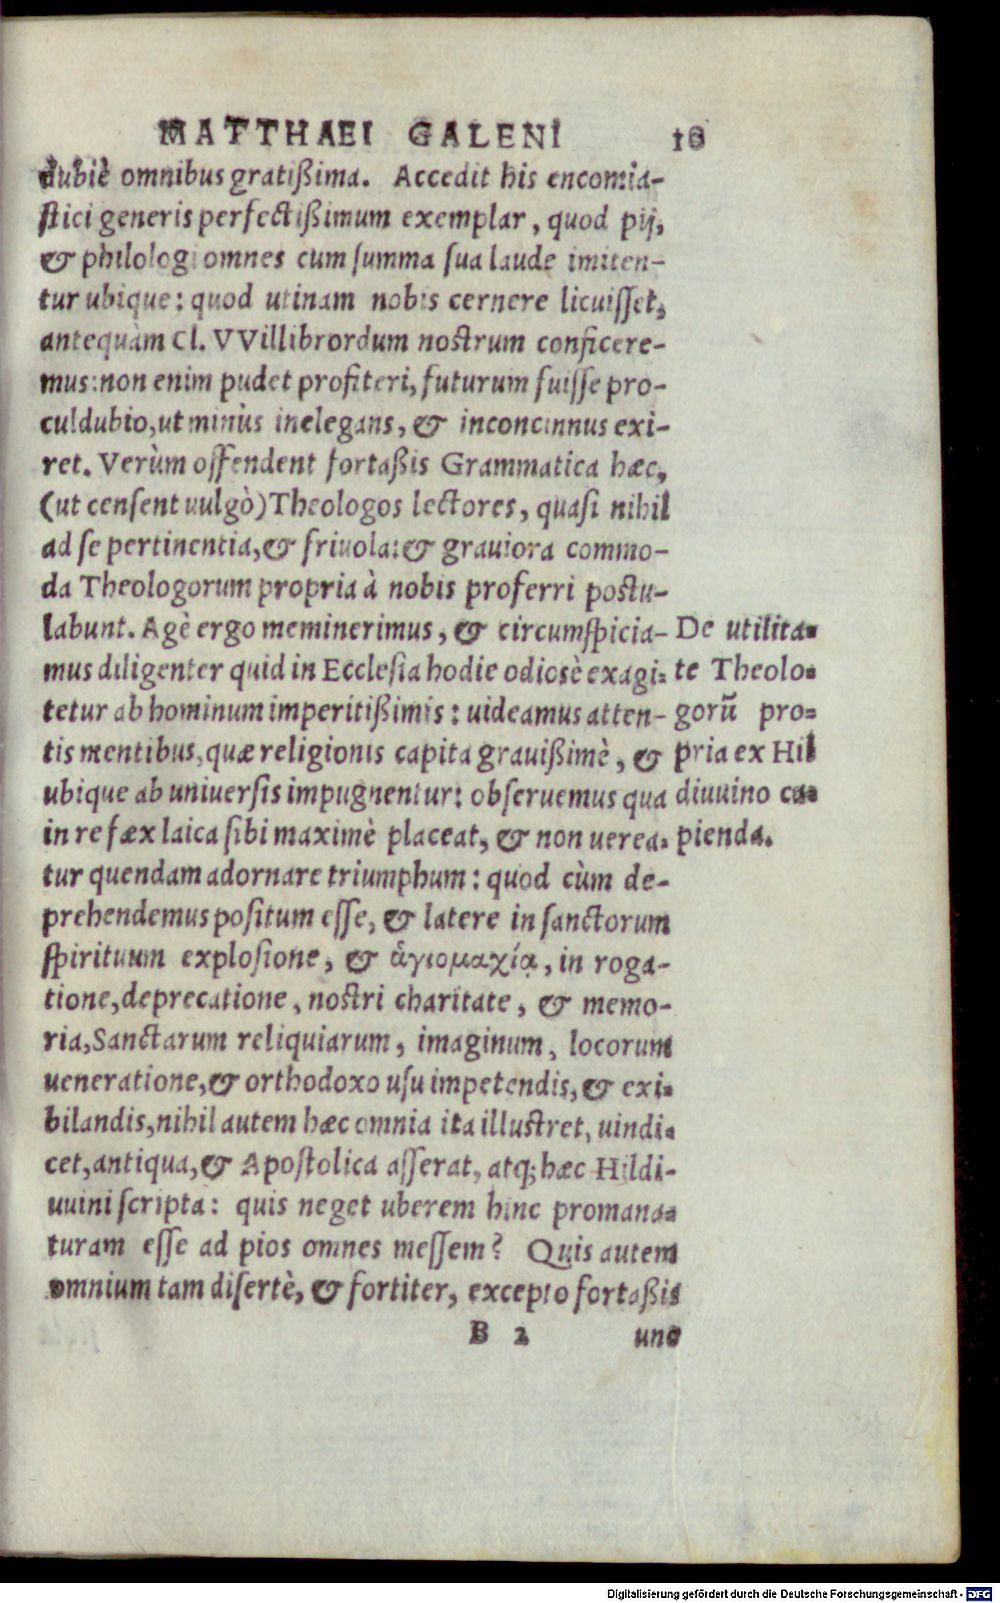 MATTHAEI GALENI 10
dubiè omnibus gratißima. Accedit his encomia-
ſtici generis perfectißimum exemplar, quod pij,
& philologi omnes cum ſumma ſua laude imiten-
tur ubique: quod utinam nobis cernere licuiſſet,
antequàm Cl. VVillibrordum nostrum conficere-
mus: non enim pudet profiteri, futurum fuiſſe pro-
culdubio, ut minùs inelegans, & inconcinnus exi-
ret. Verùm offendent fortaßis Grammatica hæc,
(ut cenſent uulgò) Theologos lectores, quaſi nihil
ad ſe pertinentia, & friuola: & grauiora commo-
da Theologorum propria à nobis proferri poſtu-
labunt. Agè ergo meminerimus, & circumſpicia-
mus diligenter quid in Eccleſia hodie odioſè exagi-
tetur ab hominum imperitißimis: uideamus atten-
tis mentibus, quæ religionis capita grauißimè, &
ubique ab uniuerſis impugnentur: obſeruemus qua
in re fæx laica ſibi maximè placeat, & non uerea-
tur quendam adornare triumphum: quod cùm de-
prehendemus poſitum eſſe, & latere in ſanctorum
ſpirituum exploſione, & ἁγιομαχίᾳ, in roga-
tione, deprecatione, noſtri charitate, & memo-
ria, Sanctarum reliquiarum, imaginum, locorum
ueneratione, & orthodoxo uſu impetendis, & exi-
bilandis, nihil autem hæc omnia ita illuſtret, uindi-
cet, antiqua, & Apoſtolica aſſerat, atq; hæc Hildi-
uuini ſcripta: quis neget uberem hinc promana-
turam eſſe ad pios omnes meſſem? Quis autem
omnium tam diſertè, & fortiter, excepto fortaßis
B 2 uno
De utilita-
te Theolo-
gorū pro-
pria ex Hil
diuuino ca-
pienda.
Digitalisierung gefördert durch die Deutsche Forschungsgemeinschaft - DFG